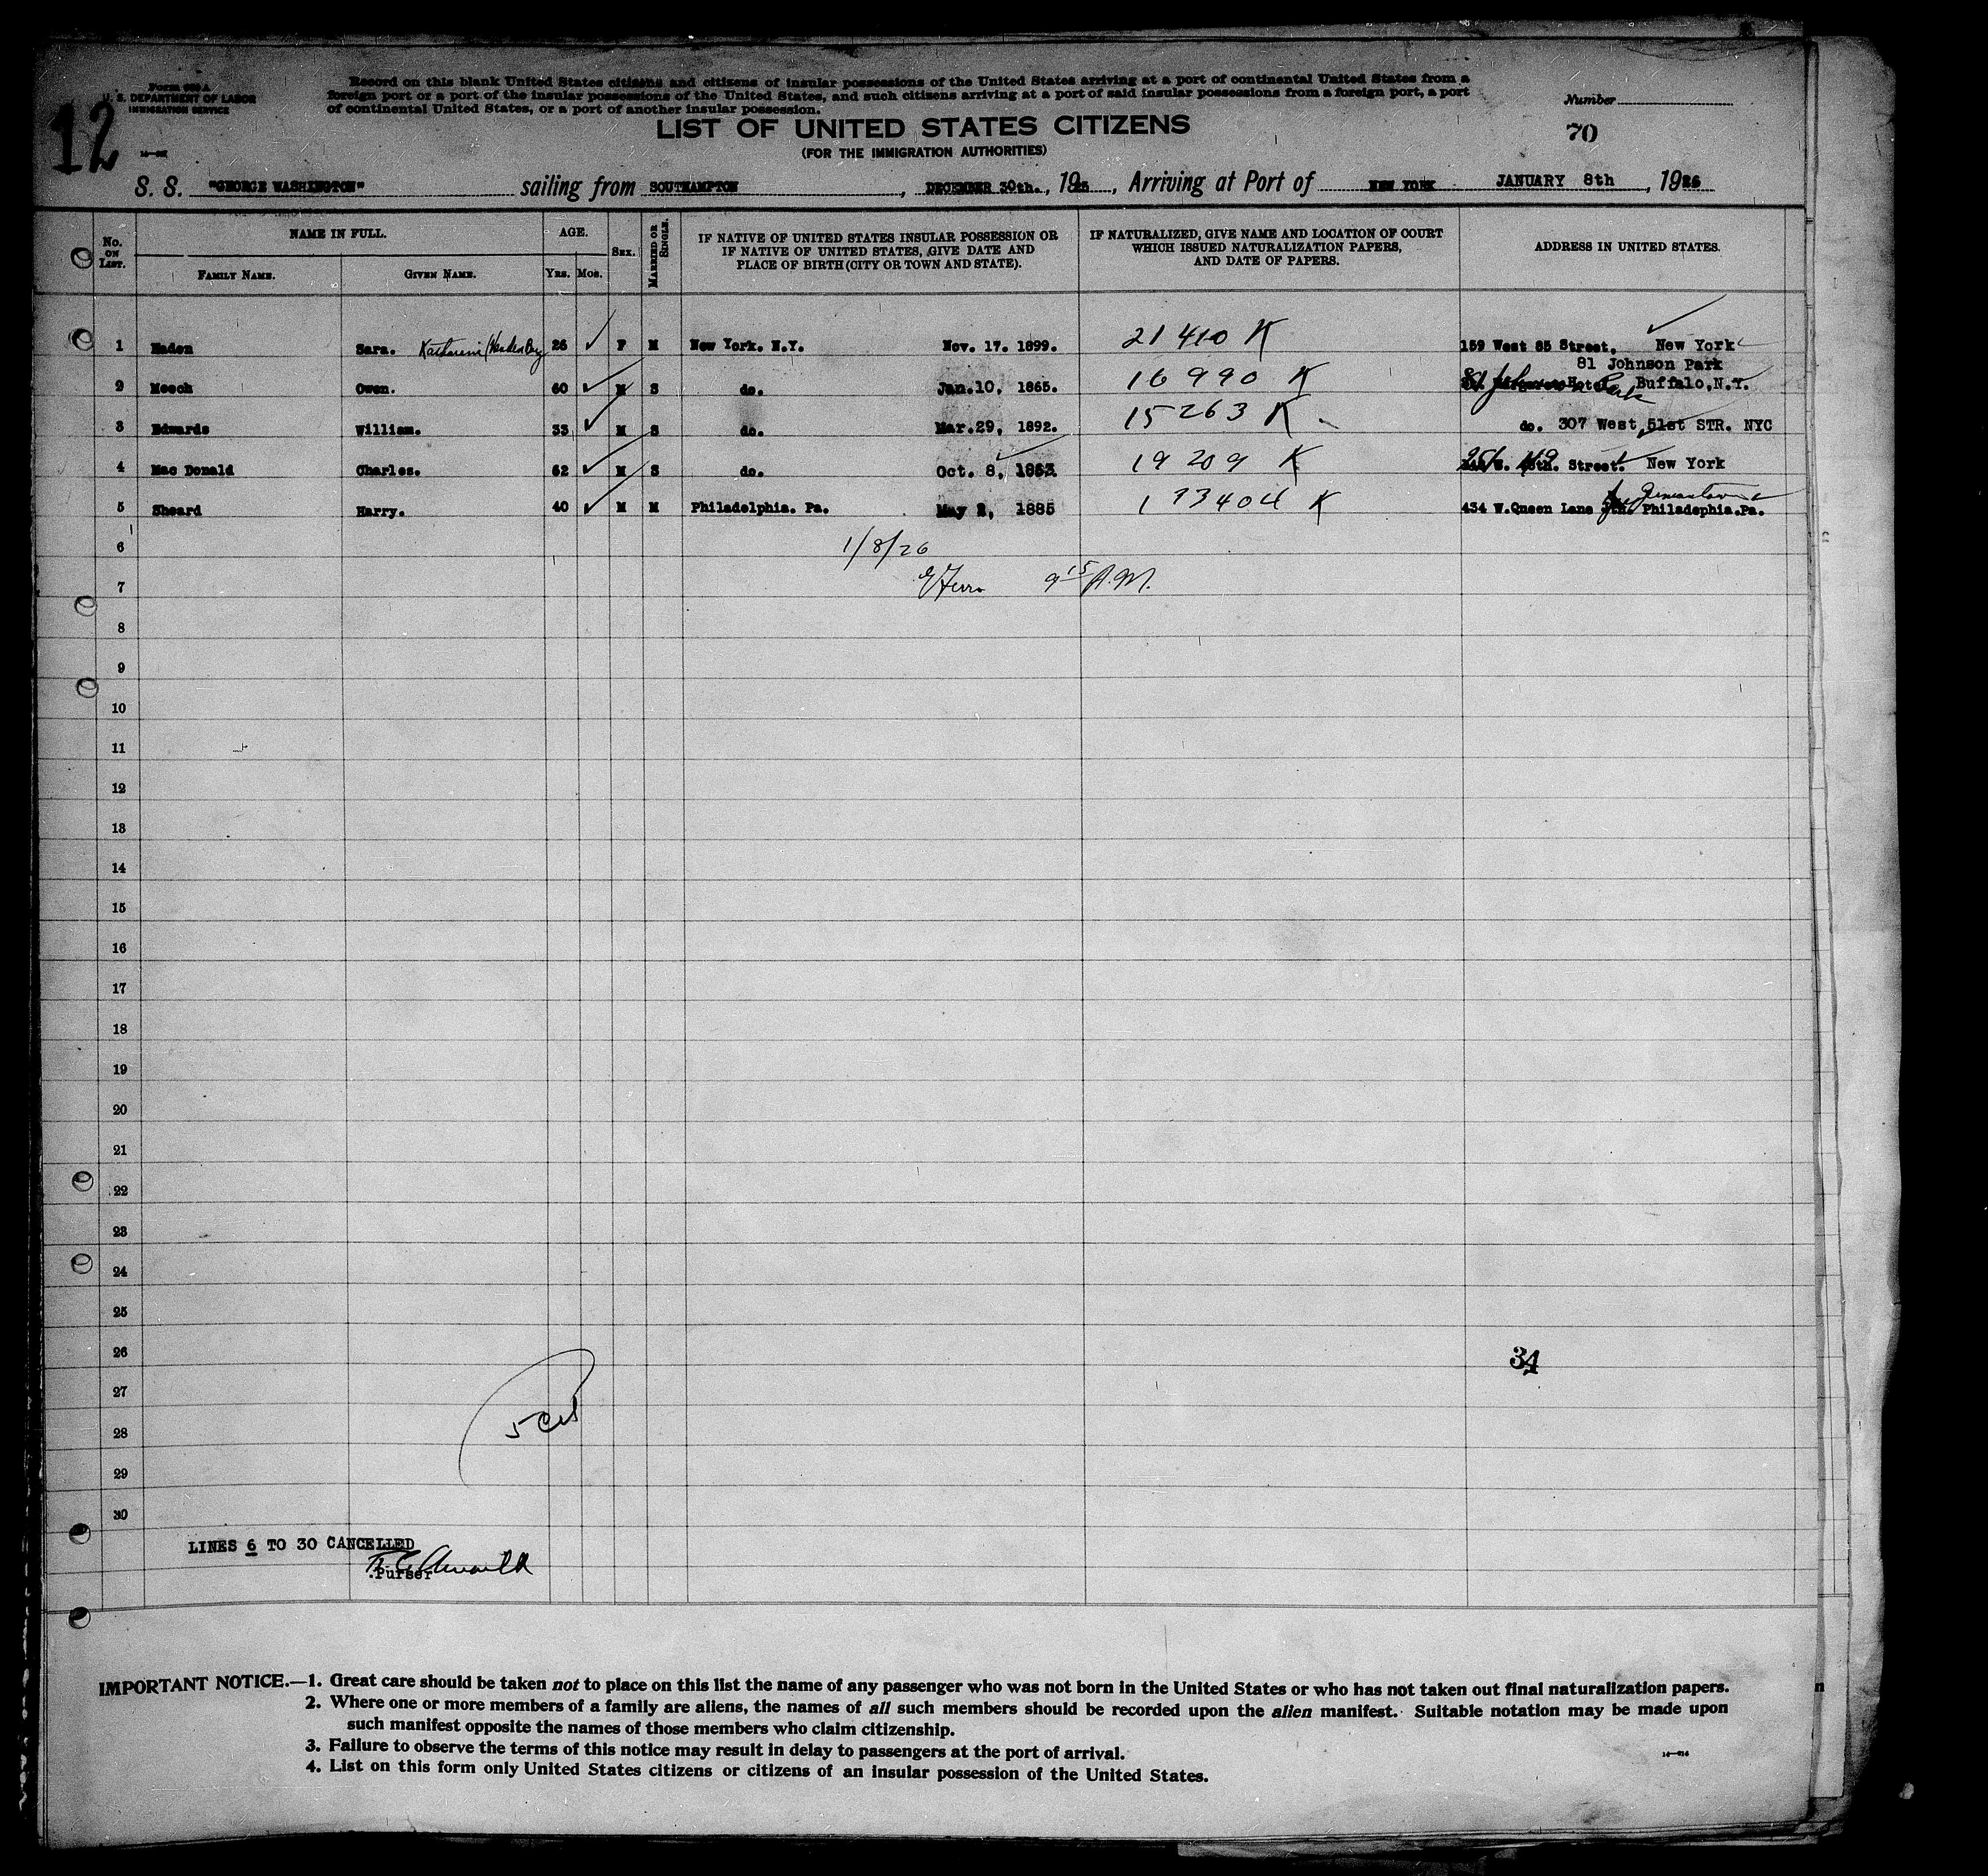 Form 630 A
U. S. DEPARTMENT OF LABOR
IMMIGRATION SERVICE
12
Record on this blank United States citizens and citizens of insular possessions of the United States arriving at a port of continental United States from a
foreign port or a port of the insular possessions of the United States, and such citizens arriving at a port of said insular possessions from a foreign port, a port
of continental United States, or a port of another insular possession.
Number
70
LIST OF UNITED STATES CITIZENS
(FOR THE IMMIGRATION AUTHORITIES)
S. S. "GEORGE WASHINGTON" sailing from SOUTHAMPTON, DECEMBER 30th., 1925, Arriving at Port of NEW YORK JANUARY 8th, 1926
No. ON LIST. NAME IN FULL. FAMILY NAME. GIVEN NAME. AGE. YRS. MOS. SEX. MARRIED OR SINGLE. IF NATIVE OF UNITED STATES INSULAR POSSESSION OR IF NATIVE OF UNITED STATES, GIVE DATE AND PLACE OF BIRTH (CITY OR TOWN AND STATE). IF NATURALIZED, GIVE NAME AND LOCATION OF COURT WHICH ISSUED NATURALIZATION PAPERS, AND DATE OF PAPERS. ADDRESS IN UNITED STATES.
1 Haden Sara. 26 F M New York. N.Y. Nov. 17. 1899. 21410 K 159 West 85 Street, New York
81 Johnson Park
2 Meech Owen. 60 M S do. Jan.10, 1865. 16990 K 81 Johnson Park Hotel Buffalo,N.Y.
3 Edwards William. 33 M S do. Mar.29, 1892. 15263 K do. 307 West 51st STR. NYC
4 Mac Donald Charles. 62 M S do. Oct. 8, 1863 19209 K Street. New York
5 Sheard Harry. 40 M M Philadelphia. Pa. May 2, 1885 133404 K 434 W.Queen Lane Germantown Philadephia.Pa.
6 1/8/26
7 9 15 A.M.
8
9
10
11
12
13
14
15
16
17
18
19
20
21
22
23
24
25
26 34
27
28 5
29
30
LINES 6 TO 30 CANCELLED
.Purser
IMPORTANT NOTICE.—1. Great care should be taken not to place on this list the name of any passenger who was not born in the United States or who has not taken out final naturalization papers.
2. Where one or more members of a family are aliens, the names of all such members should be recorded upon the alien manifest. Suitable notation may be made upon
such manifest opposite the names of those members who claim citizenship.
3. Failure to observe the terms of this notice may result in delay to passengers at the port of arrival.
4. List on this form only United States citizens or citizens of an insular possession of the United States.